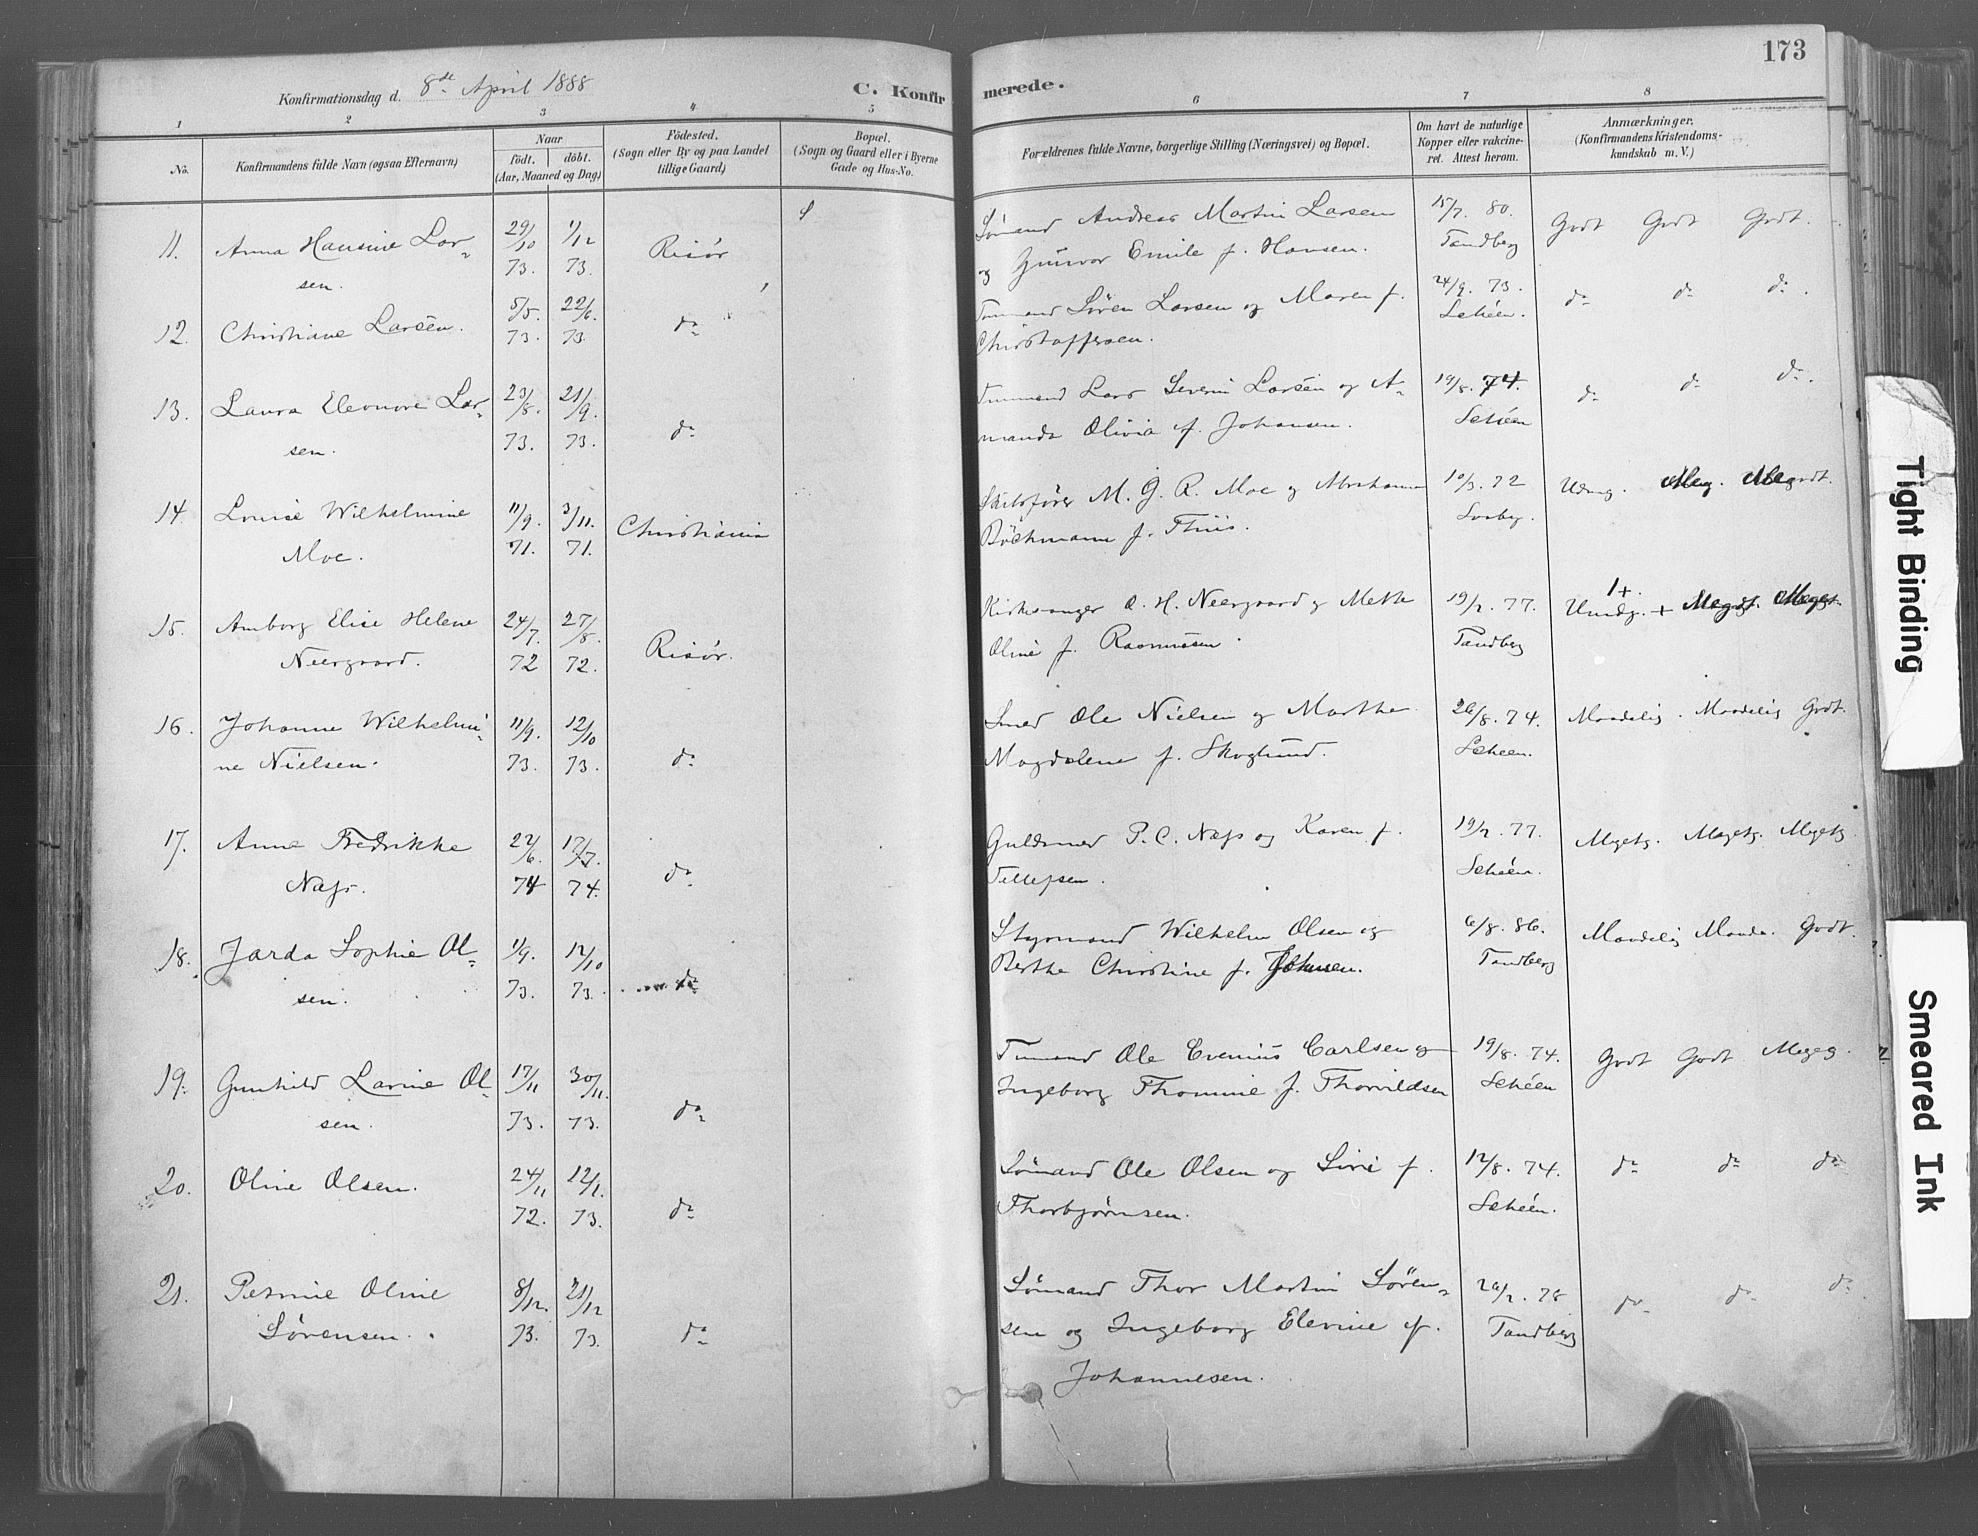 173
Konfirmationsdag d. 8de April 1888
C. Konfirmerede.
1 2 3 4 5 6 7 8
No.
Konfirmandens fulde Navn (ogsaa Efternavn)
Naar
födt. döbt.
(Aar, Maaned og Dag)
Födested.
(Sogn eller By og paa Landet
tillige Gaard)
Bopæl.
(Sogn og Gaard eller i Byerne
Gade og Hus-No.
Forældrenes fulde Navne, borgerlige Stilling (Næringsvei) og Bopæl.
Om havt de naturlige
Kopper eller vakcine-
ret. Attest herom.
Anmærkninger.
(Konfirmandens Kristendoms-
kundskab m. V.)
11. Anna Hansine Lar- 29/10 1/12 Risør Sømand Andreas Martin Larsen 15/7. 80. Godt Godt Godt.
sen. 73. 73. og Gunvor Emilie f. Hansen. Tandberg
12. Christiane Larsen. 5/5. 22/6. do Tømmand Søren Larsen og Maren f. 24/9. 73. do do do.
73. 73. Christoffersen. Schéen.
13. Laura Eleonore Lar- 23/8. 21/9. do Tømmand Lars Severin Larsen og A- 19/8. 74. do do do.
sen. 73. 73. manda Olivia f. Johansen. Schéen
14. Louise Wilhelmine 11/9. 3/11. Christiania M. G. R. Moe og Abrahamine 10/3. 72 Udmg. Meg. Megodt.
Moe. 71. 71. Böckmann f. Thiis.
15. Amborg Elise Helene 24/7. 27/8. Risør. Kirkesanger O. H. Neergaard og Mette 19/2. 77. 1+.
Neergaard. 72 72. Oline f. Rasmussen. Tandberg
16. Johanne Wilhelmi- 11/9. 12/10 do Smed Ole Nielsen og Marthe 26/8. 74. Maadelig. Maadelig Godt.
ne Nielsen. 73. 73. Magdalene f. Skoglund. Scheen.
17. Anne Fredrikke 22/6. 17/7. do Guldsmed P. C. Næss og Karen f. 19/2. 77. Megetg. Megetg. Megetg
Næss. 74 74. Tellefsen. Schéen.
18. Jarda Sophie Ol- 1/9. 12/10 do Styrmand Wilhelm Olsen og 6/8. 86. Maadelig Maade. Godt.
sen. 73. 73. Berthe Christine f. Johnsen. Tandberg
19. Gunhild Larine Ol- 17/11 30/11. do Tømmand Ole Evenius Carlsen og 19/8. 74. Godt Godt Megeg.
sen. 73. 73. Ingeborg Thomine f. Thorvildsen Schéen
20. Oline Olsen. 24/11 12/1. do Sømand Ole Olsen og Sivie f. 12/8. 74. do do do
72. 73. Thorbjørnsen. Schéen.
21. Petrine Oline 8/12. 21/12 do Sømand Thor Martin Sören- 26/2. 78 do do do
Sørensen. 73. 73. sen og Ingeborg Elevine f. Tandberg
Johannesen.
Tight Binding
Smeared Ink